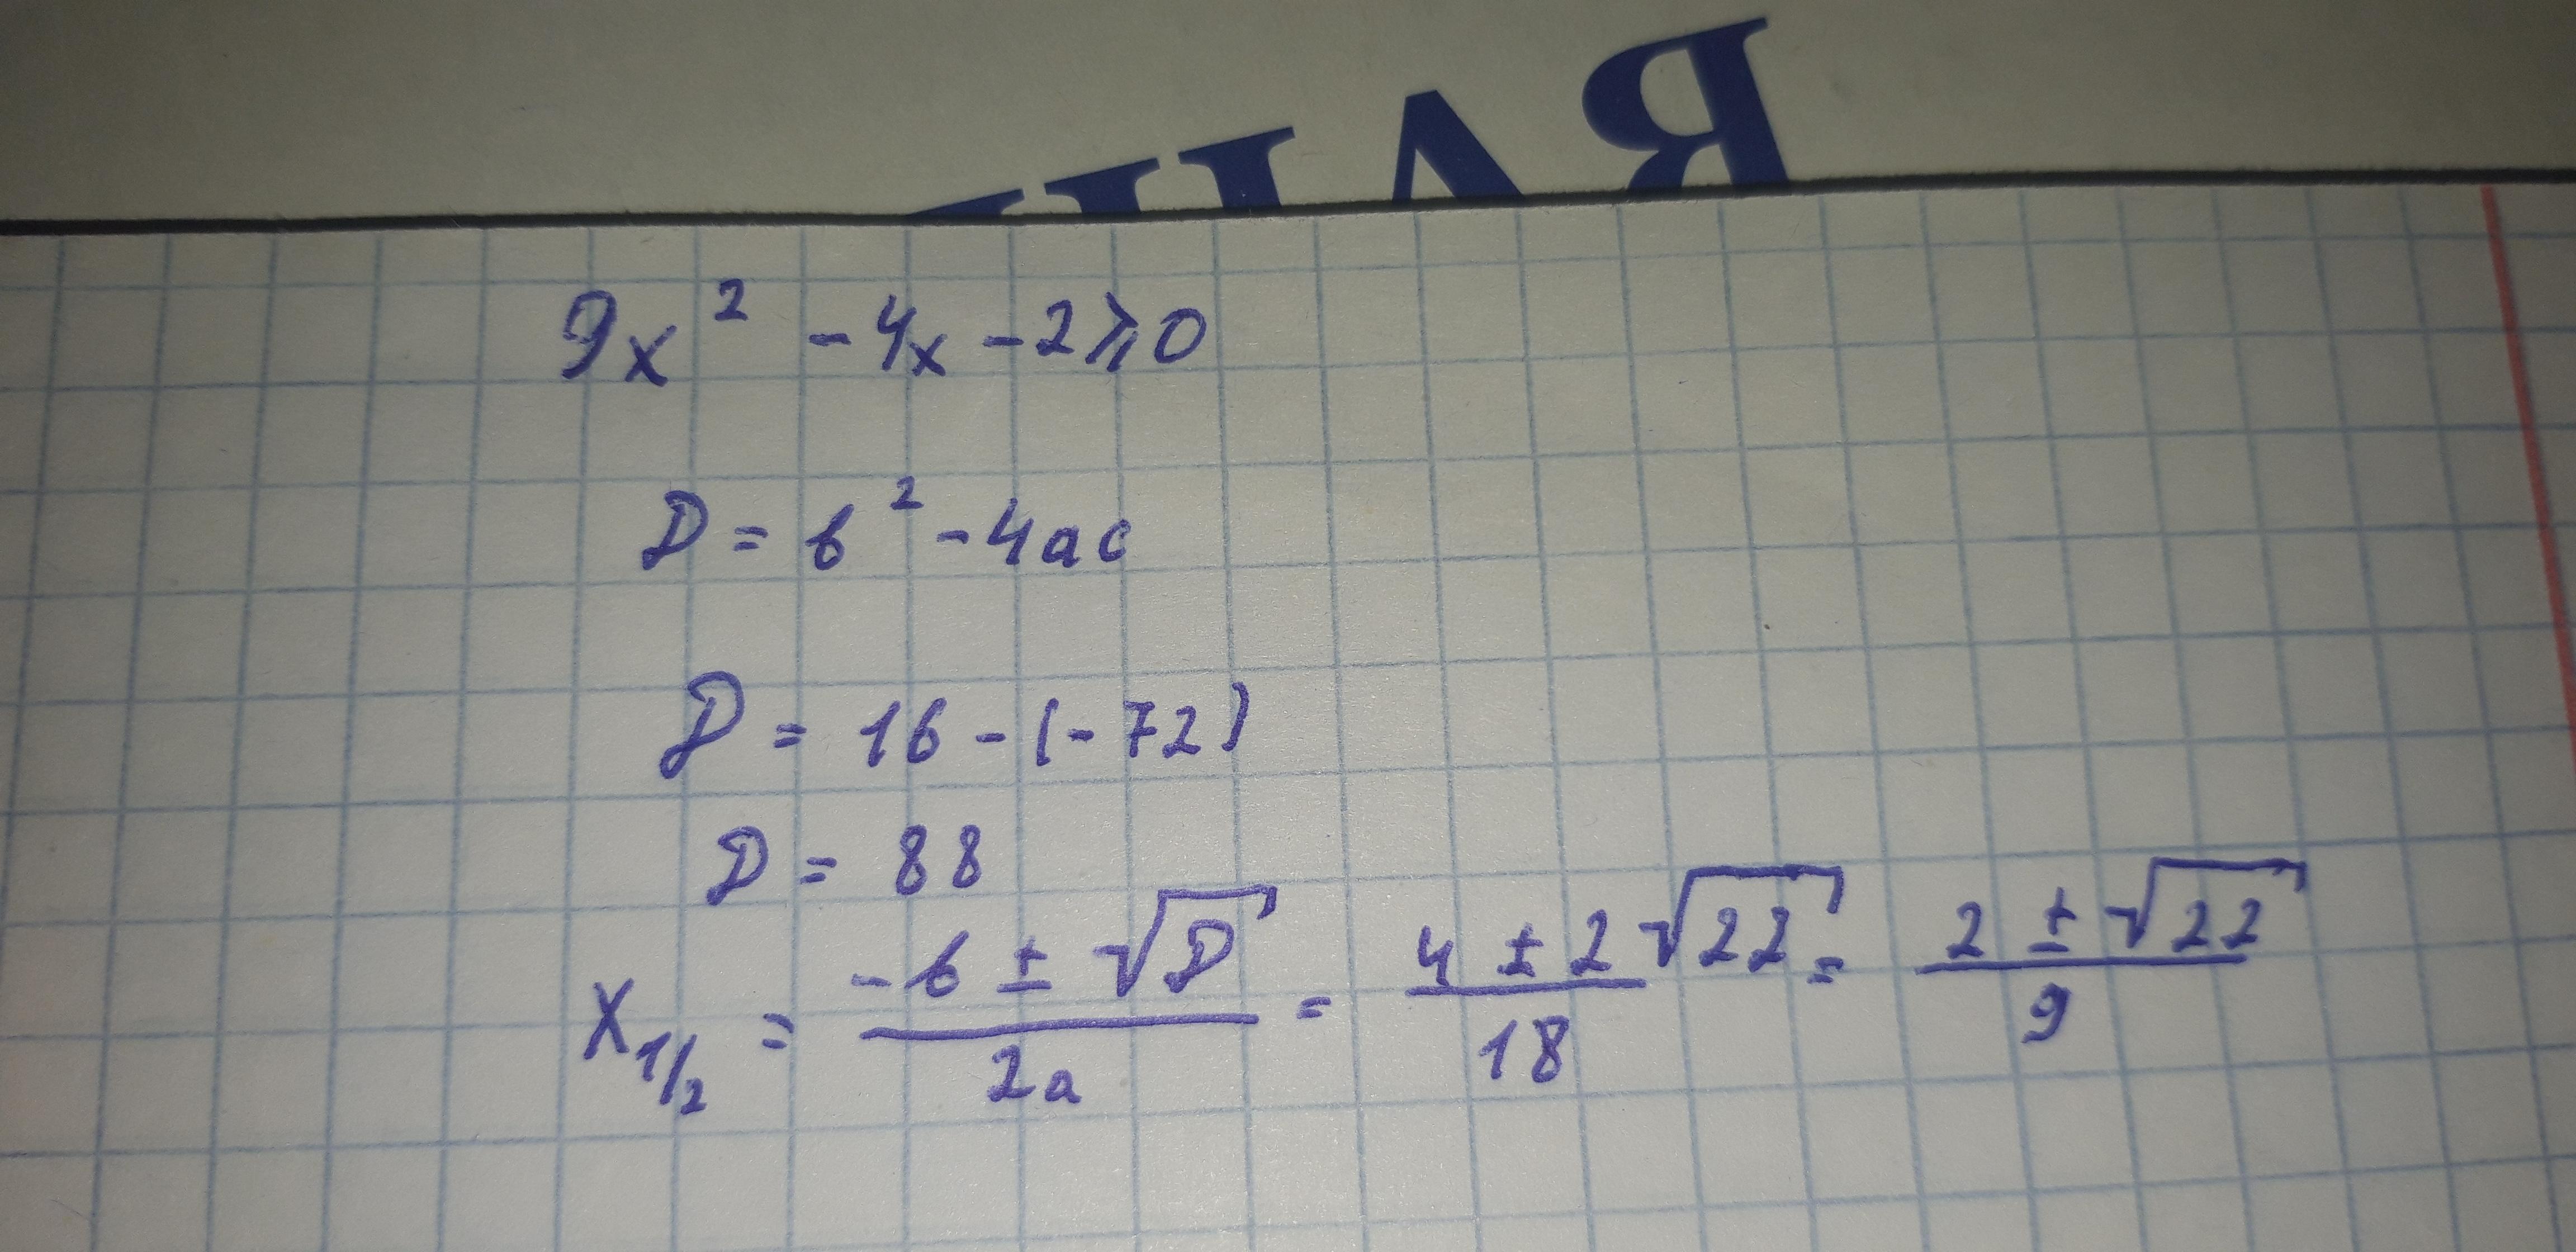 9x² - 4x - 2 ⩾ 0
D = b² - 4ac
D = 16 - (-72)
D = 88
x₁/₂ = (-b ± √D)/(2a) = (4 ± 2√22)/18 = (2 ± √22)/9